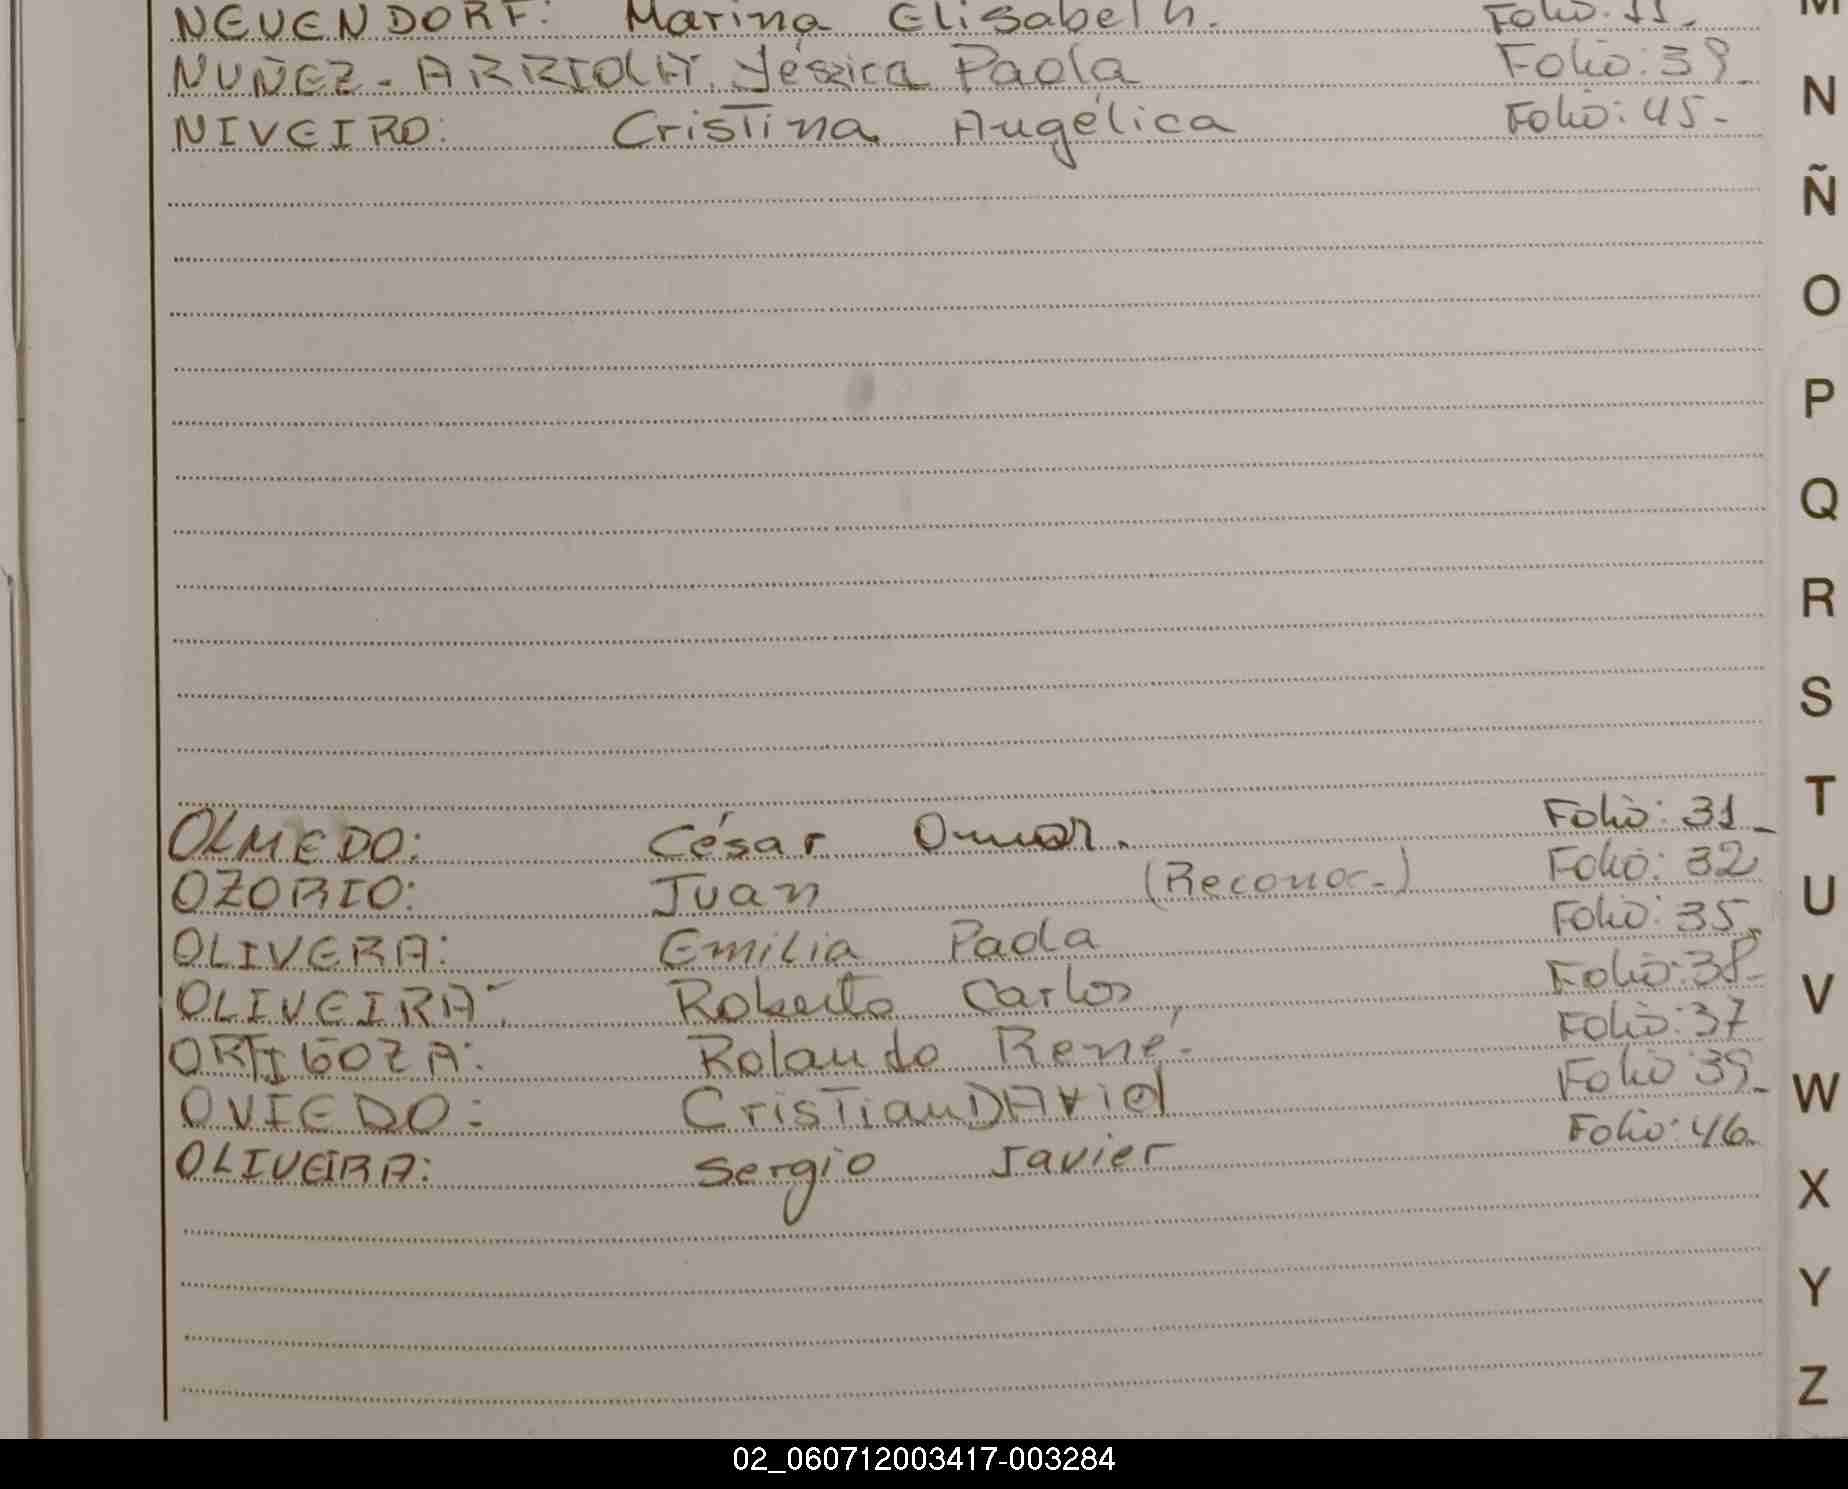 NEUENDORF: Marina Elisabeth. Folio: 11.
NUÑEZ - ARRIOLA. Yéssica Paola Folio: 39_
NIVEIRO: Cristina Angélica Folio: 45.-
OLMEDO: César Omar. Folio: 31_
OZORIO: Juan (Reconoc-) Folio: 32
OLIVERA: Emilia Paola Folio: 35.
OLIVEIRA: Roberto Carlos Folio: 38-
ORTIGOZA: Rolando René.- Folio: 37
OVIEDO: Cristian DAVid Folio 39_
OLIVEIRA: Sergio Javier Folio: 46.
M
N
Ñ
O
P
Q
R
S
T
U
V
W
X
Y
Z
02_060712003417-003284